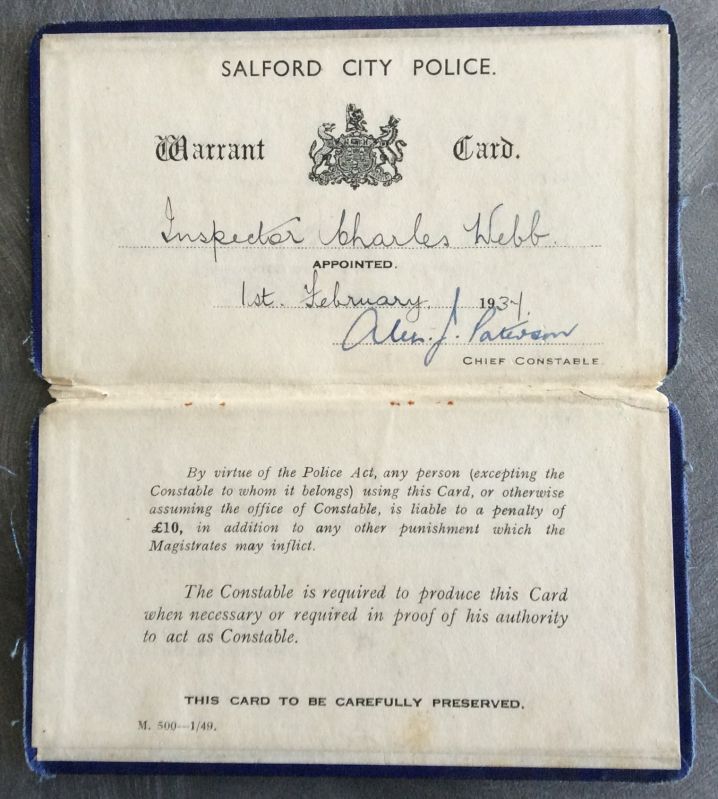 SALFORD CITY POLICE.
Warrant Card.
Inspector Charles Webb.
APPOINTED.
1st. February. 1937.
Alex. J. Paterson
CHIEF CONSTABLE.
By virtue of the Police Act, any person (excepting the
Constable to whom it belongs) using this Card, or otherwise
assuming the office of Constable, is liable to a penalty of
£10, in addition to any other punishment which the
Magistrates may inflict.
The Constable is required to produce this Card
when necessary or required in proof of his authority
to act as Constable.
THIS CARD TO BE CAREFULLY PRESERVED.
M. 500—1/49.